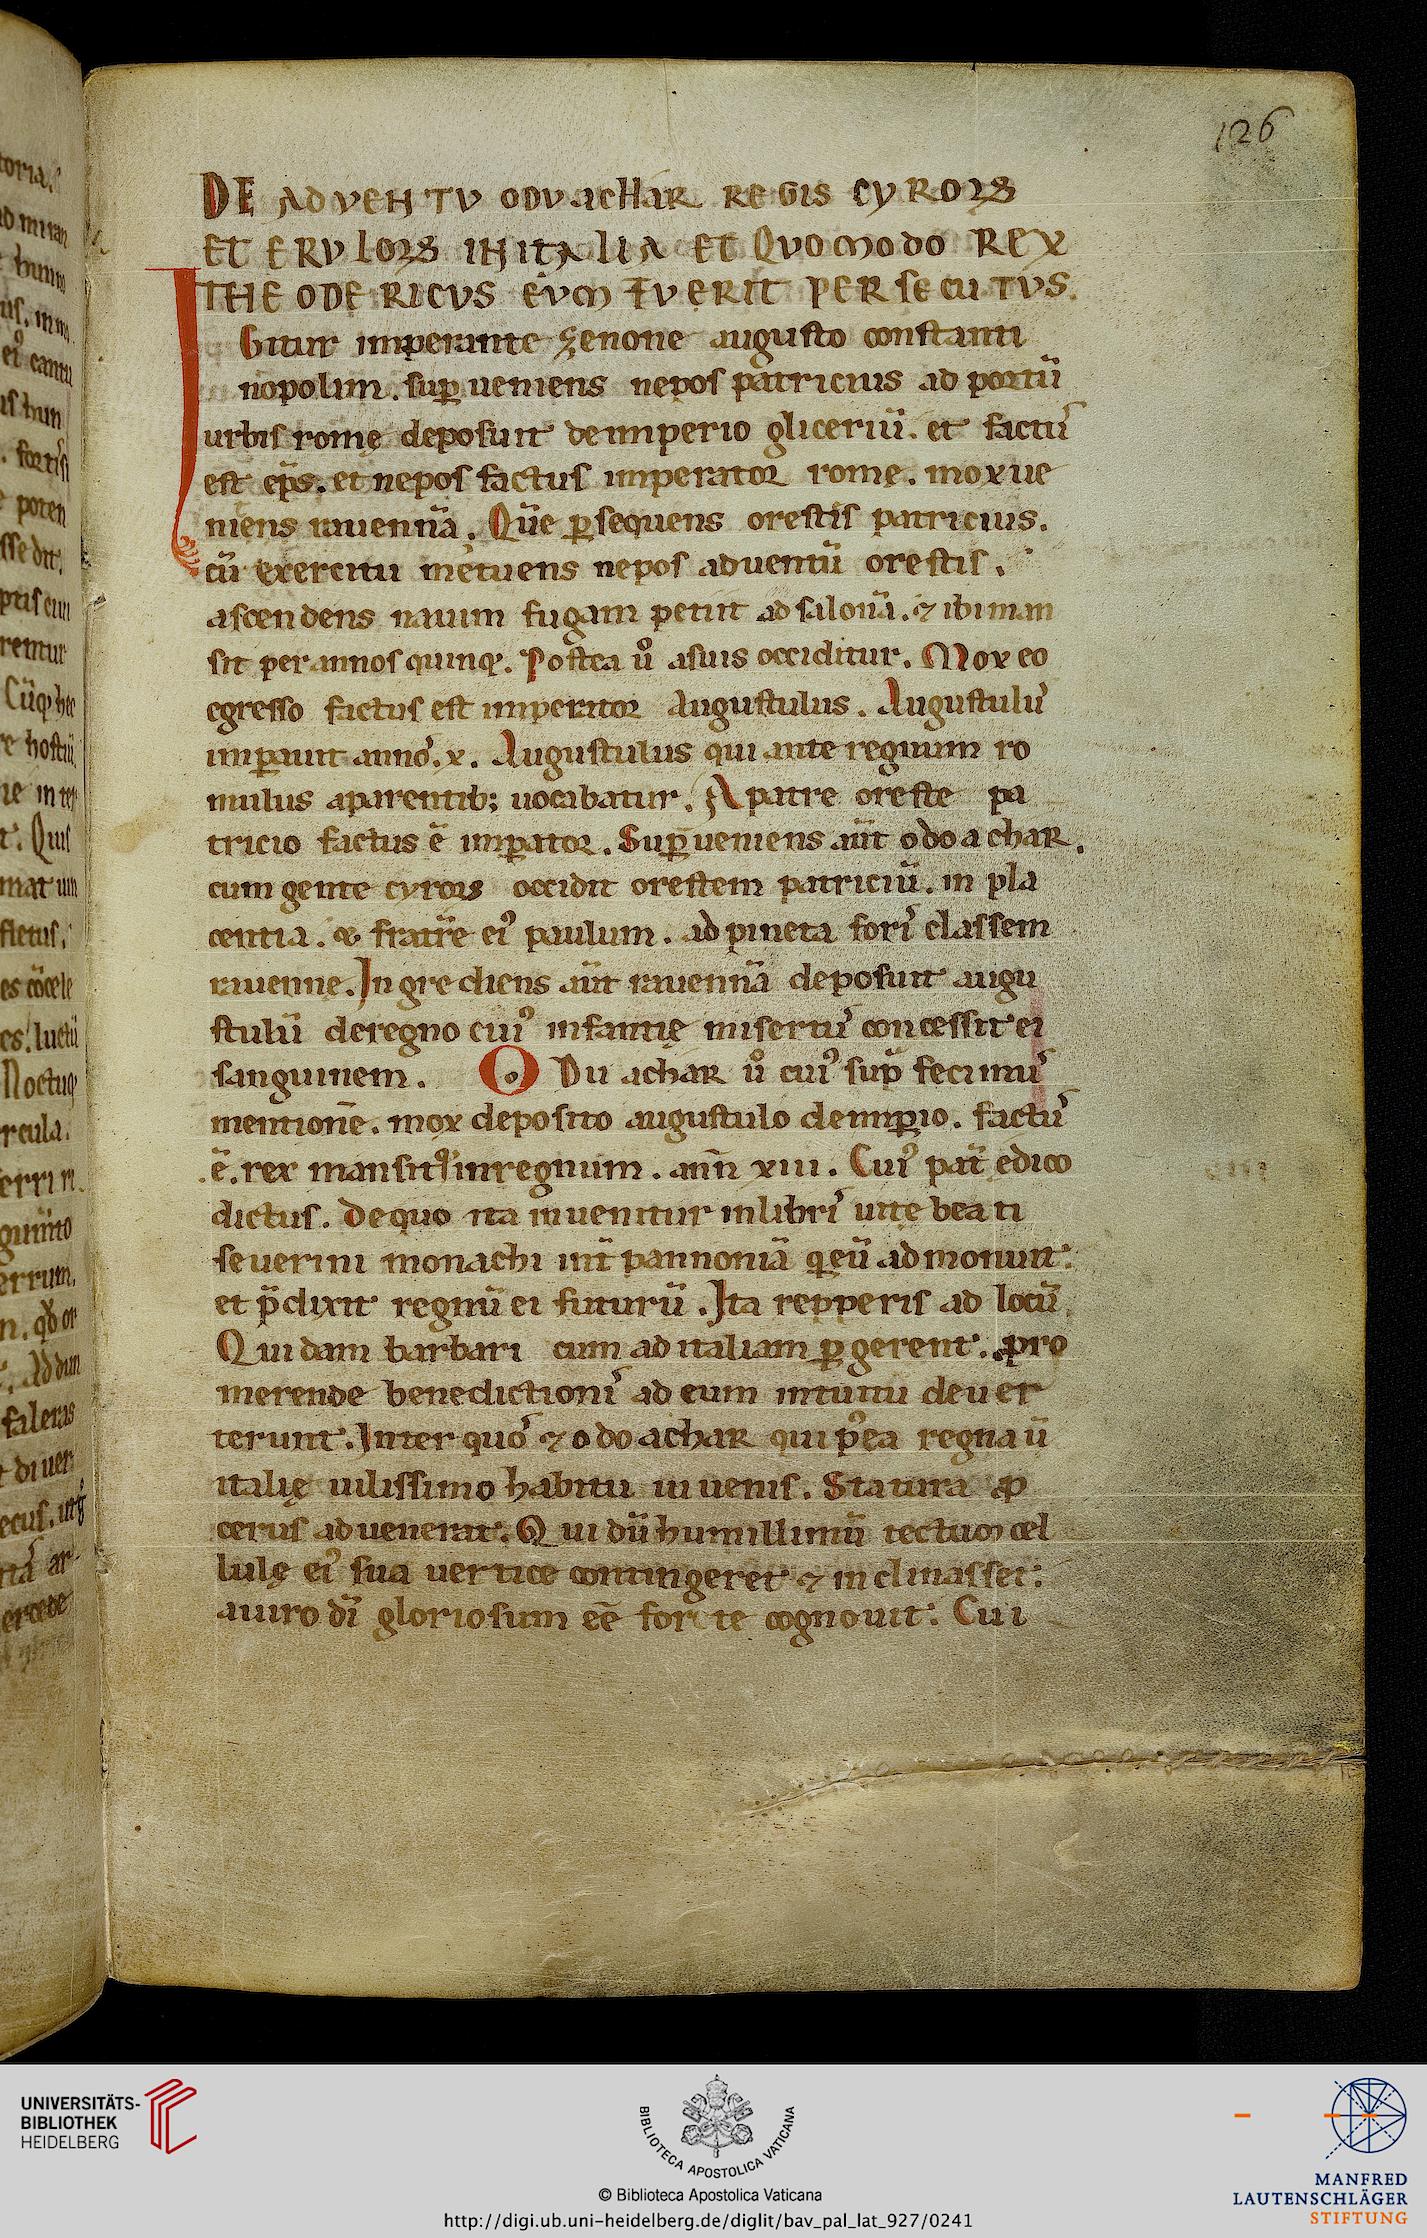 126
DE ADVENTV ODVACHAR REGIS CYROꝜ
ET ERVLOꝜ IN ITALIA ET QVOMODO REX
THEODERICVS EVM FVERIT PERSECVTVS.
IGitur imperante zenone augusto constanti
nopolim. suꝑueniens nepos patricius ad portū
urbis romę deposuit de imperio gliceriū. et factuꝰ
est ep̄s. et nepos factus imperator romę. mox ue
niens rauennā. Quē ꝑsequens orestis patricius.
cū exercitu metuens nepos aduentū orestis.
ascendens nauim fugam petiit ad salonā. ⁊ ibi man
sit per annos quinqꝫ. Postea ů asuis occiditur. Mox eo
egresso factus est imperator Augustulus. Augustuluꝰ
imꝑauit annoꝰ. x. Augustulus qui ante regnum ro
mulus aparentibꝫ uocabatur. A patre oreste pa
tricio factus ē imꝑator. Suꝑueniens aūt odoachar.
cum gente cyroꝝ occidit orestem patriciū. in pla
centia. & fratrē eiꝰ paulum. ad pineta foriꝰ classem
rauenne. Ingrediens aūt rauennā deposuit augu
stulū deregno cuiꝰ infantię misertuꝰ concessit ei
sanguinem. ODuachar ů cuiꝰ sup̄ fecimuꝰ
mentionē. mox deposito augustulo deimꝑio. factuꝰ
ē. rex mansitqꝫ inregnum. ann̄ xiii. Cuiꝰ pat̄ edico
dictus. De quo ita inuenitur inlibriꝰ uitę beati
seuerini monachi int̄ pannoniā q̇ eū admonuit:
et p̄dixit regnū ei futurū. Ita repperis ad locū
Quidam barbari cum ad italiam ꝑgerent. pro
merende benedictioniꝰ ad eum intuitu deuer
terunt. Inter quoꝰ ⁊ odoachar qui p̊ea regnaū
italię uilissimo habitu iuuenis. Statura ꝓ
cerus aduenerat. Qui dū humillimū tectum cel
lulę eiꝰ sua uertice contingeret ⁊ inclinasset:
auiro dī gloriosum eē for te cognouit: Cui
UNIVERSITÄTS-
BIBLIOTHEK
HEIDELBERG
BIBLIOTECA APOSTOLICA VATICANA
© Biblioteca Apostolica Vaticana
http://digi.ub.uni-heidelberg.de/diglit/bav_pal_lat_927/0241
MANFRED
LAUTENSCHLÄGER
STIFTUNG